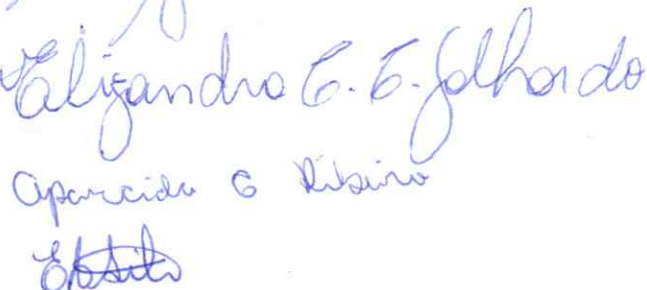 Elizandra C. C. Galhardo
Aparecida G Ribeiro